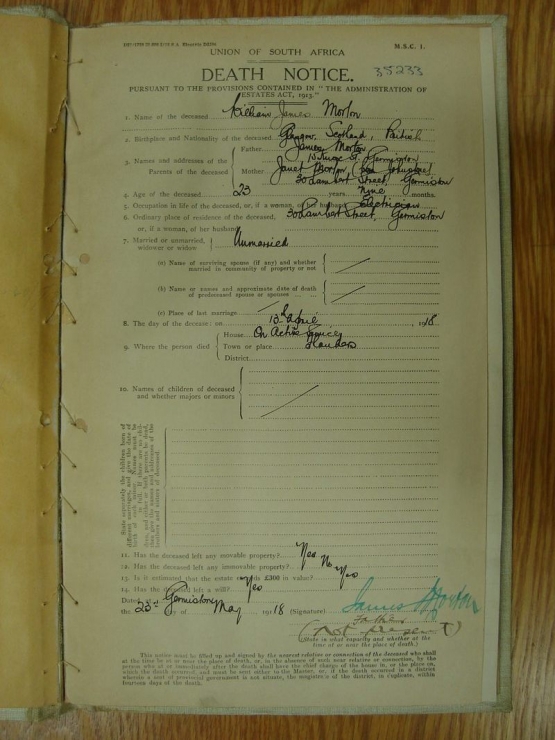 UNION OF SOUTH AFRICA
M.S.C. 1.
DEATH NOTICE.
35233
PURSUANT TO THE PROVISIONS CONTAINED IN "THE ADMINISTRATION OF
ESTATES ACT, 1913."
1. Name of the deceased William James Morton
2. Birthplace and Nationality of the deceased Glasgow, Scotland, British
3. Names and addresses of the Parents of the deceased
Father James Morton
St. Germiston
Mother Janet Morton, (born Johnstone)
30 Lambert Street, Germiston
4. Age of the deceased 23 years Nine months.
5. Occupation in life of the deceased, or, if a woman, of her husband Electrician
6. Ordinary place of residence of the deceased, 30 Lambert Street, Germiston
or, if a woman, of her husband
7. Married or unmarried, widower or widow Unmarried
(a) Name of surviving spouse (if any) and whether
married in community of property or not
(b) Name or names and approximate date of death
of predeceased spouse or spouses
(c) Place of last marriage
8. The day of the decease: on 13th April, 1918
9. Where the person died
House On Active Service
Town or place Flanders
District
10. Names of children of deceased
and whether majors or minors
State separately the children born of
different marriages, and give the date of
birth of each minor.
11. Has the deceased left any movable property? Yes
12. Has the deceased left any immovable property? No
13. Is it estimated that the estate exceeds £300 in value? No
14. Has the deceased left a will? Yes
Dated at Germiston
the 23rd day of May 1918 (Signature) James Morton
Father
(not present)
(State in what capacity and whether at the
time of or near the place of death.)
This notice must be filled up and signed by the nearest relative or connection of the deceased who shall
at the time be at or near the place of death, or, in the absence of such near relative or connection, by the
person who at or immediately after the death shall have the chief charge of the house in, or the place on,
which the death occurred, and must be sent either to the Master, or, if the death occurred in a district
wherein a seat of provincial government is not situate, the magistrate of the district, in duplicate, within
fourteen days of the death.